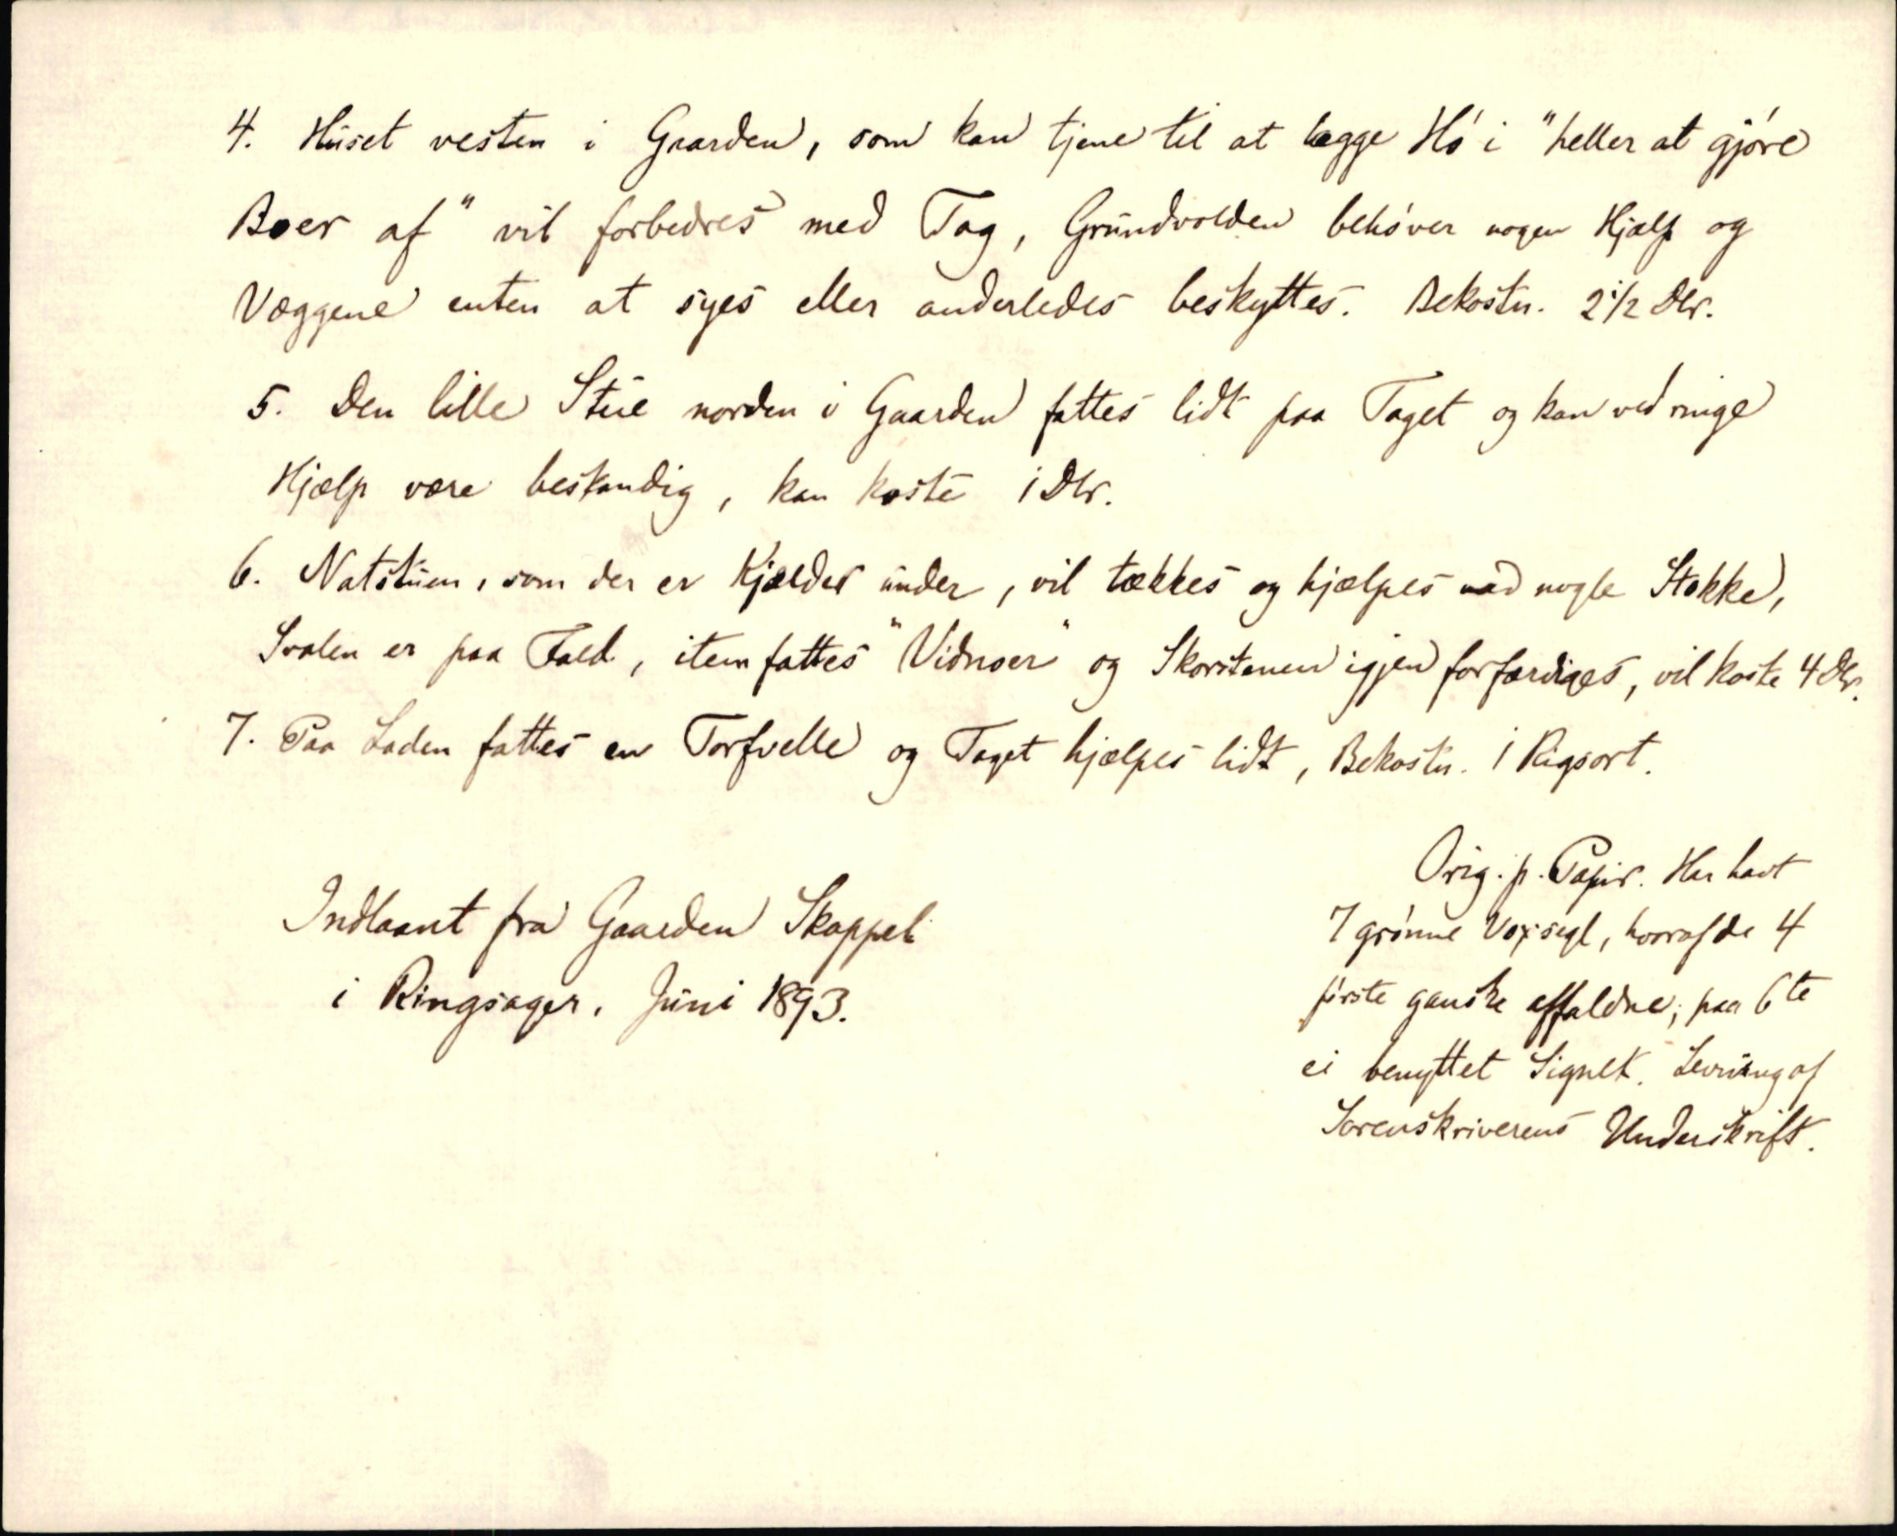 4. Huset vesten i Gaarden, som kan tjene til at lægge Hö i "heller at gjöre
Boer af" vil forbedres med Tag, Grundvolden behöver nogen Hjælp og
Væggene enten at syes eller anderledes beskyttes. Bekostn. 2 1/2 Dlr.
5. Den lille Stue norden i Gaarden fattes lidt paa Taget og kan ved ringe
Hjælp være bestandig, kan koste 1 Dlr.
6. Natstuen, som der er Kjælder under, vil tækkes og hjælpes med nogle Stokke,
Svalen er paa Fald, item fattes "Vidnoer" og Skorstenen igjen forfærdiges, vil koste 4 Dlr.
7. Paa Laden fattes en Torfvelle og Taget hjælpes lidt, Bekostn. 1 Rigsort.
Indlaant fra Gaarden Skappel
i Ringsager. Juni 1893.
Orig. p. Papir. Har havt
7 grönne Voxsegl, hvoraf de 4
förste ganske affaldne; paa 6te
ei benyttet Signet. Levning af
Sorenskriverens Underskrift.